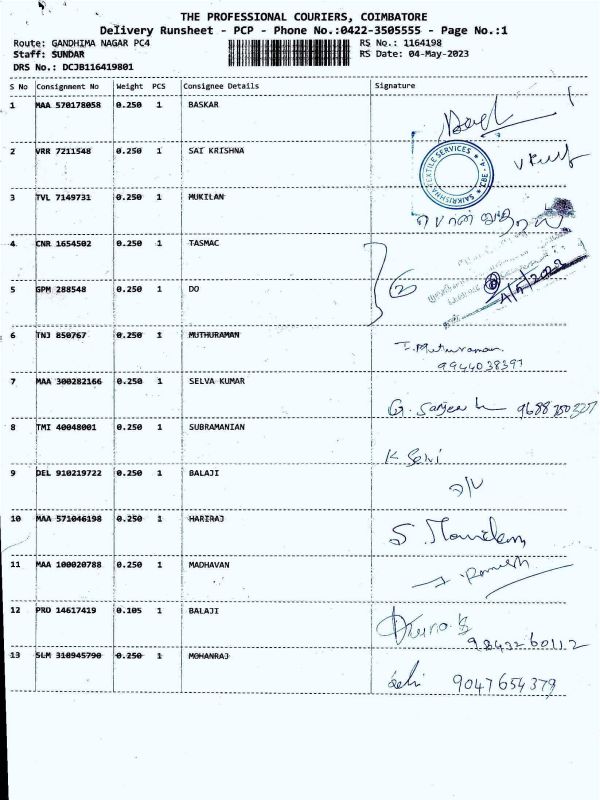 THE PROFESSIONAL COURIERS, COIMBATORE
Delivery Runsheet - PCP - Phone No.:0422-3505555 - Page No.:1
Route: GANDHIMA NAGAR PC4
Staff: SUNDAR
DRS No.: DCJB116419801
RS No.: 1164198
RS Date: 04-May-2023
S No Consignment No Weight PCS Consignee Details Signature
1 MAA 570178058 0.250 1 BASKAR
2 VRR 7211548 0.250 1 SAI KRISHNA
SAIKRISHNA TEXTILE SERVICES
3 TVL 7149731 0.250 1 MUKILAN
4 CNR 1654502 0.250 1 TASMAC
5 GPM 288548 0.250 1 DO
2
4/5/2023
6 TNJ 850767 0.250 1 MUTHURAMAN
I. Muthuraman
9944038397
7 MAA 300282166 0.250 1 SELVA KUMAR
G. Sanjee
8 TMI 40048001 0.250 1 SUBRAMANIAN
K Selvi
9 DEL 910219722 0.250 1 BALAJI
10 MAA 571046198 0.250 1 HARIRAJ
11 MAA 100020788 0.250 1 MADHAVAN
Ramesh
12 PRO 14617419 0.105 1 BALAJI
9843260112
13 SLM 310945790 0.250 1 MOHANRAJ
9047654379